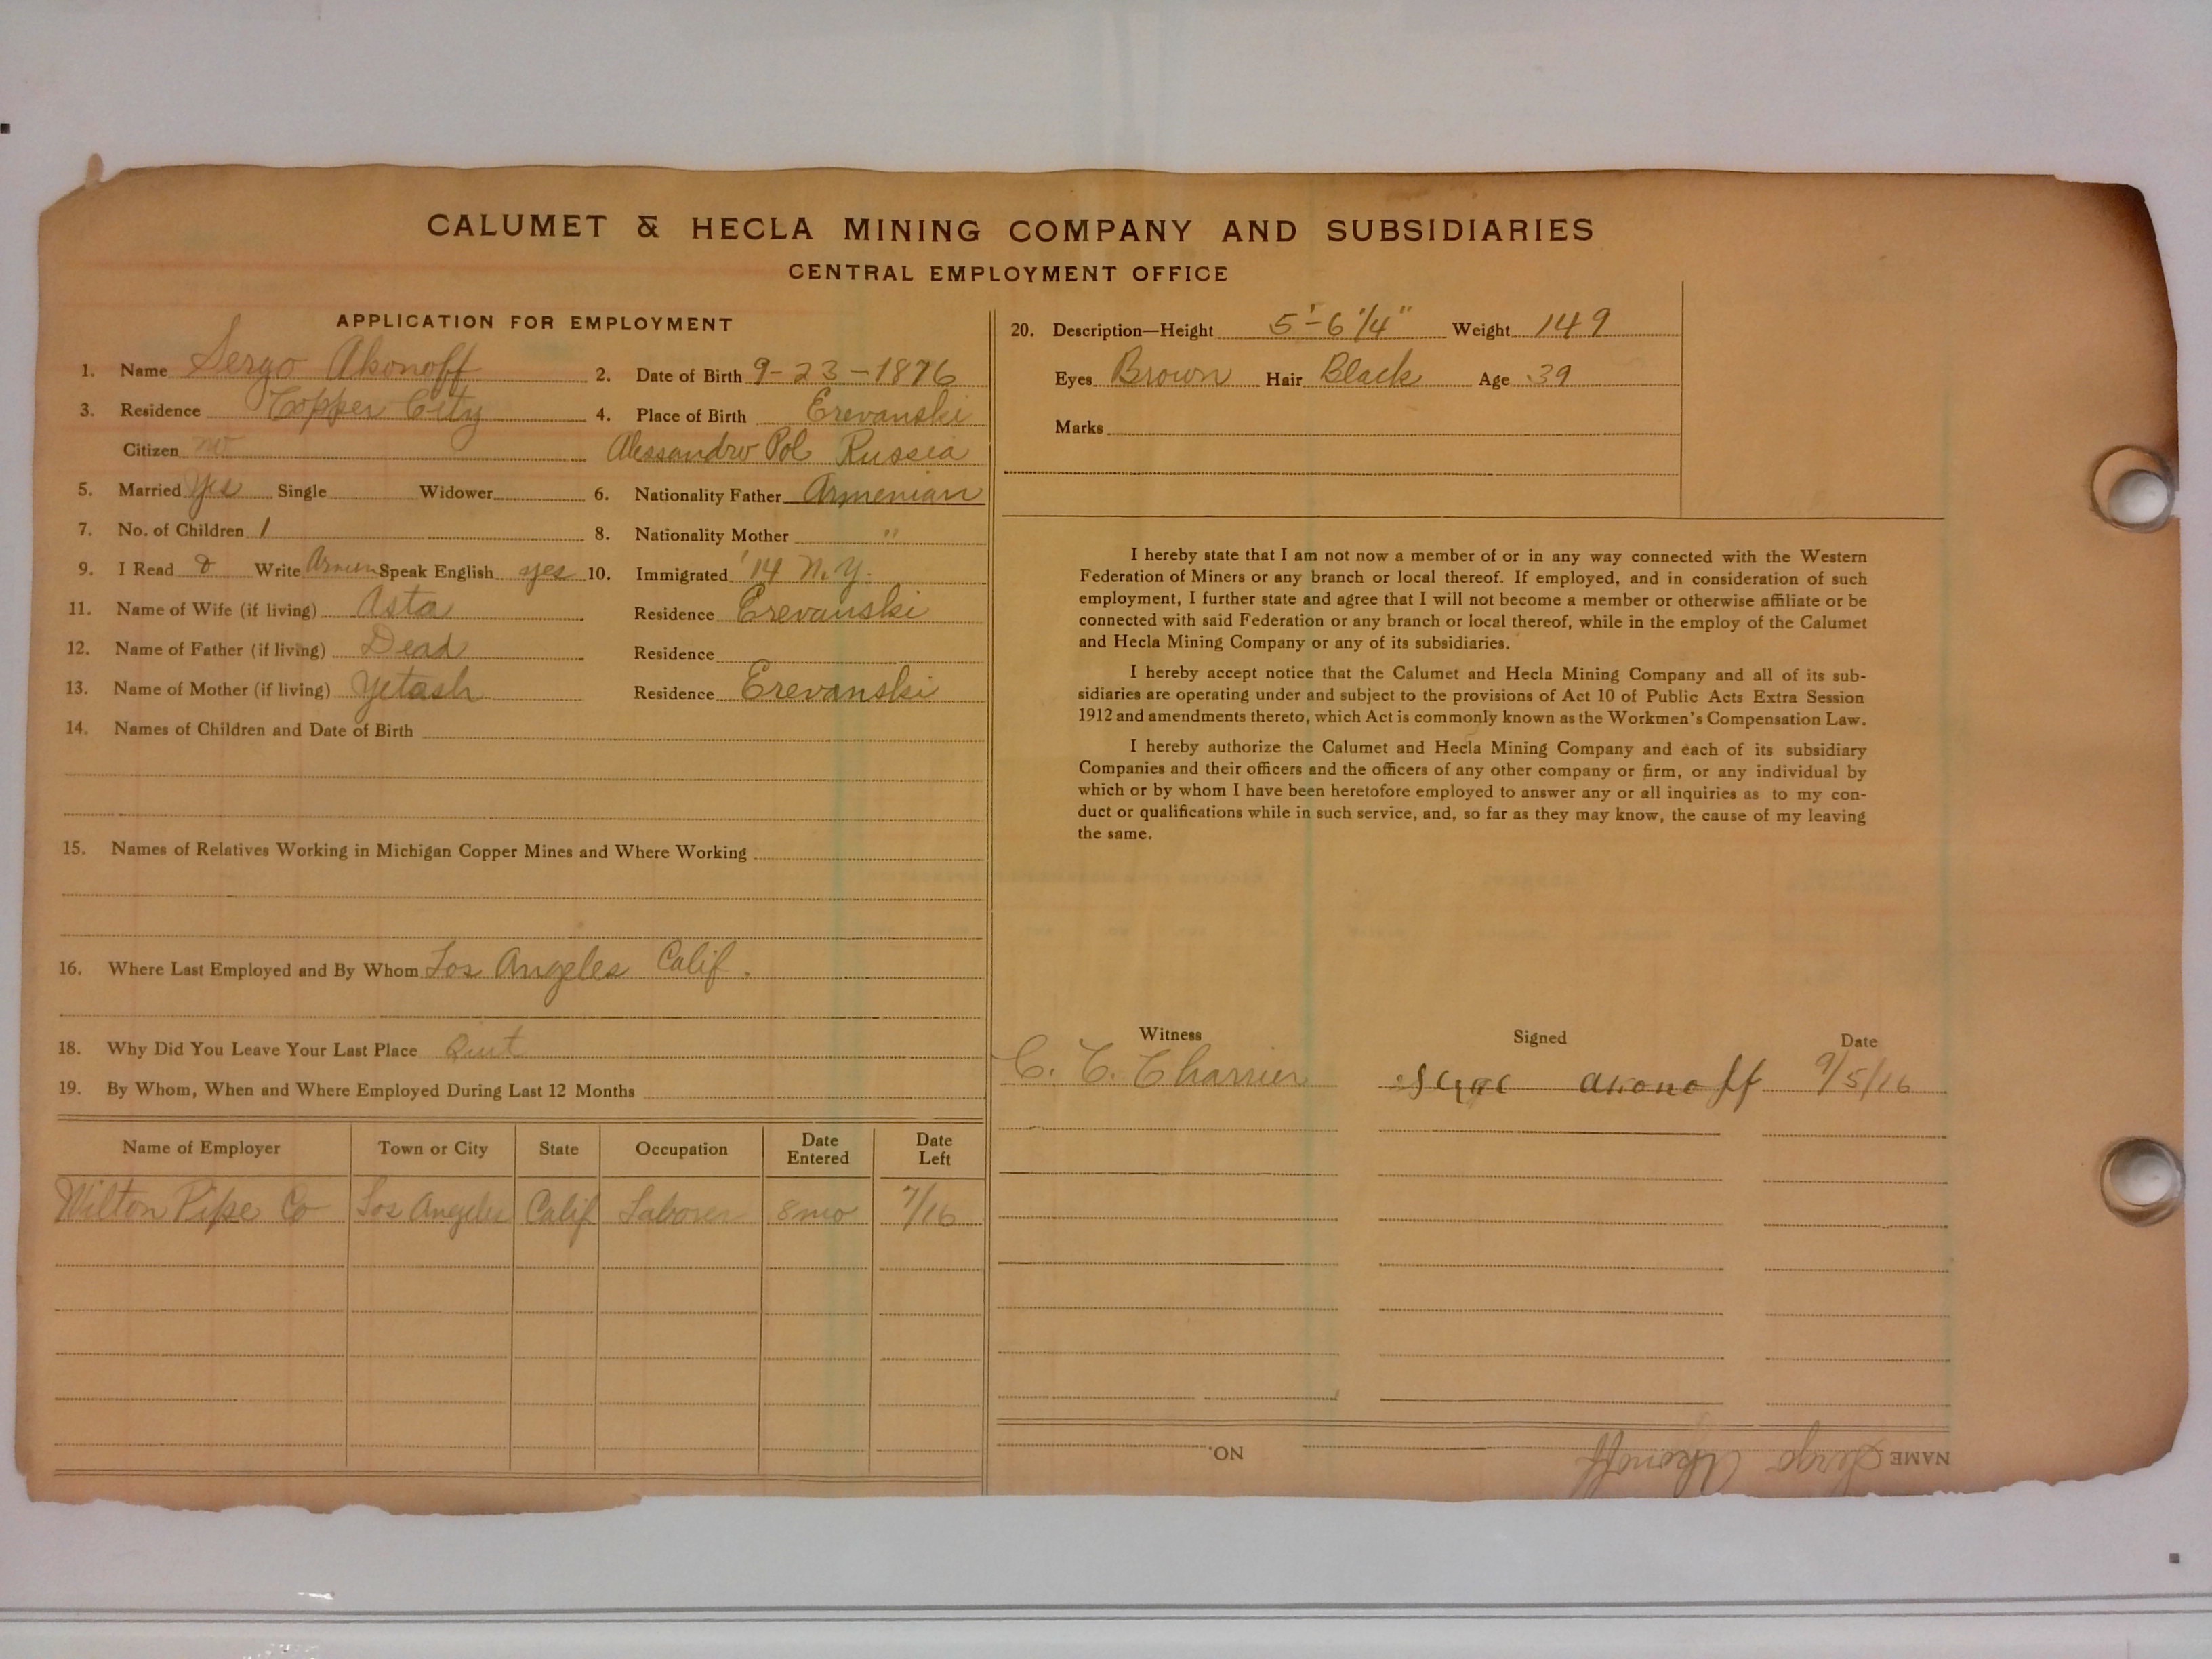 CALUMET & HECLA MINING COMPANY AND SUBSIDIARIES
CENTRAL EMPLOYMENT OFFICE
APPLICATION FOR EMPLOYMENT
1. Name Sergo Akonoff 2. Date of Birth 9-23-1876
3. Residence Copper City 4. Place of Birth Erevanski
Citizen no Alessandro Pol Russia
5. Married Yes Single Widower 6. Nationality Father Armenian
7. No. of Children 1 8. Nationality Mother "
9. I Read & Write Armen Speak English yes 10. Immigrated '14 N.Y.
11. Name of Wife (if living) Asta Residence Erevanski
12. Name of Father (if living) Dead Residence
13. Name of Mother (if living) Yetash Residence Erevanski
14. Names of Children and Date of Birth
15. Names of Relatives Working in Michigan Copper Mines and Where Working
16. Where Last Employed and By Whom Los Angeles Calif.
18. Why Did You Leave Your Last Place Quit
19. By Whom, When and Where Employed During Last 12 Months
Name of Employer Town or City State Occupation Date Entered Date Left
Wilton Pipe Co Los Angeles Calif Laborer 8 mo 7/16
20. Description—Height 5'-6 1/4" Weight 149
Eyes Brown Hair Black Age 39
Marks
I hereby state that I am not now a member of or in any way connected with the Western
Federation of Miners or any branch or local thereof. If employed, and in consideration of such
employment, I further state and agree that I will not become a member or otherwise affiliate or be
connected with said Federation or any branch or local thereof, while in the employ of the Calumet
and Hecla Mining Company or any of its subsidiaries.
I hereby accept notice that the Calumet and Hecla Mining Company and all of its sub-
sidiaries are operating under and subject to the provisions of Act 10 of Public Acts Extra Session
1912 and amendments thereto, which Act is commonly known as the Workmen's Compensation Law.
I hereby authorize the Calumet and Hecla Mining Company and each of its subsidiary
Companies and their officers and the officers of any other company or firm, or any individual by
which or by whom I have been heretofore employed to answer any or all inquiries as to my con-
duct or qualifications while in such service, and, so far as they may know, the cause of my leaving
the same.
Witness Signed Date
C. C. Charrier akonoff 9/5/16
NAME Sergo Akonoff NO.